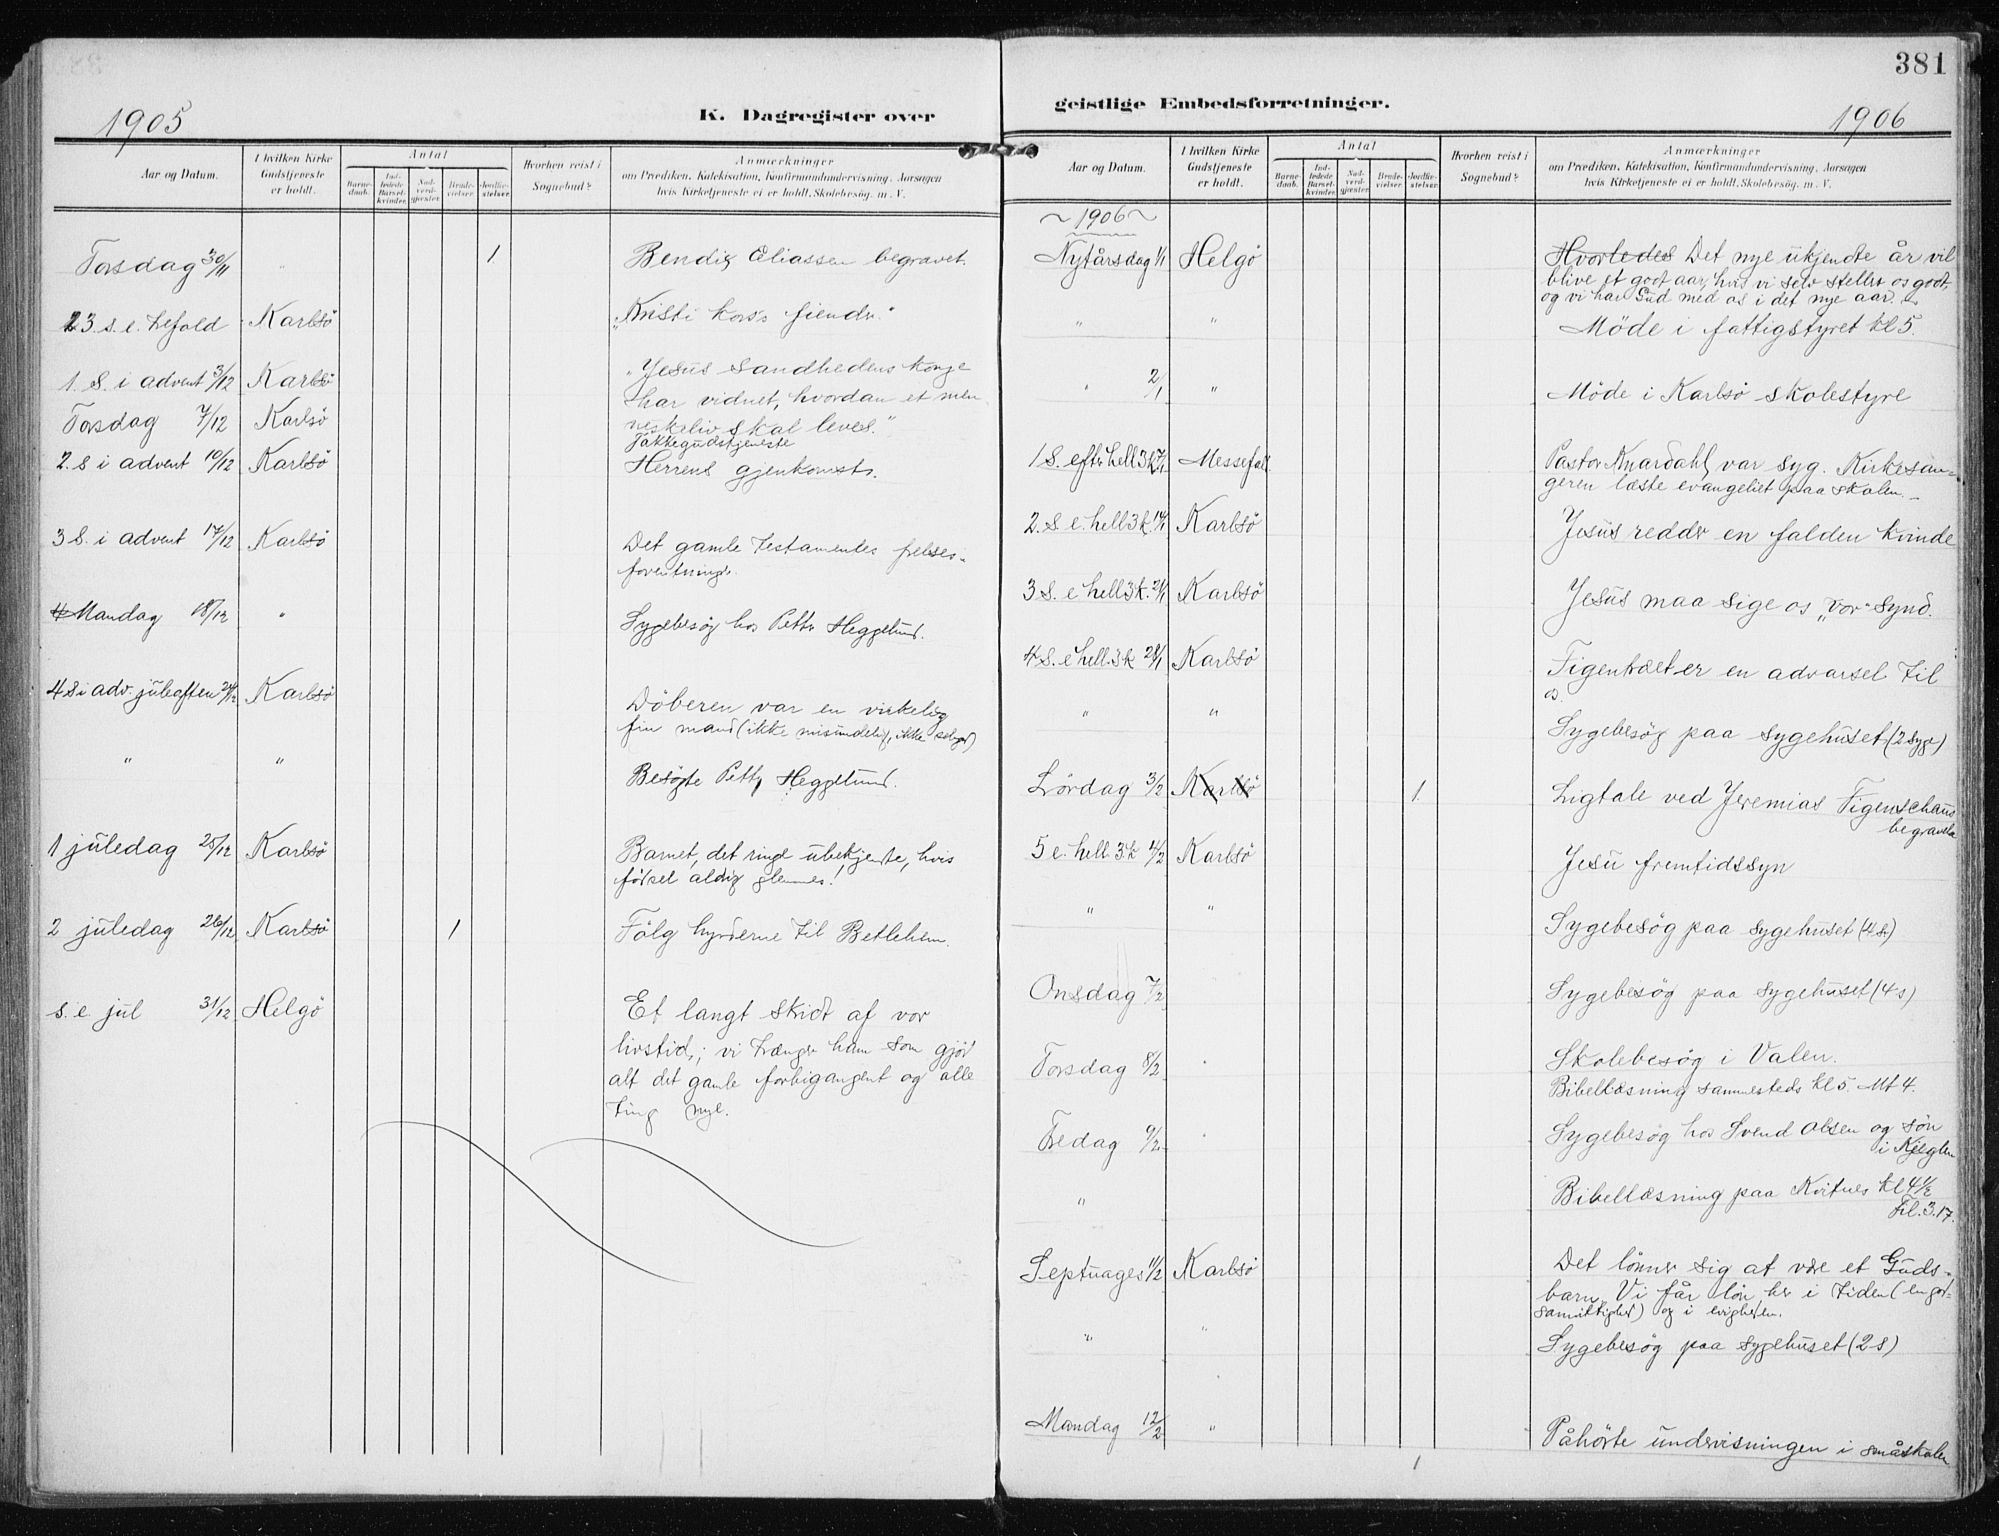 381
1905
K. Dagregister over
Aar og Datum.
I hvilken Kirke
Gudstjeneste
er holdt.
Antal
Barne-
daab.
Ind-
ledede
Barsel-
kvinder.
Nad-
verd-
gjester.
Brude-
vielser.
Jordfæ-
stelser.
Hvorhen reist i
Sognebud?
Anmærkninger
om Prædiken, Katekisation, Konfirmandundervisning, Aarsagen
hvis Kirketjeneste ei er holdt, Skolebesøg. m. V.
Torsdag 30/11 " 1 Bendix Eliassen begravet.
23 s. e. trefold Karlsö "Kristi kors's fiender."
1. S. i advent 3/12 Karlsö "Jesus sandhedens konge
har vidnet, hvordan et men-
neskeliv skal leves."
Torsdag 7/12 Karlsö
Takkegudstjeneste
2. S i advent 10/12 Karlsö Herrens gjenkomst.
3 S. i advent 17/12 Karlsö Det gamle testamentes frelses-
forventninger.
Mandag 18/12 " Sygebesög hos Petter Heggelund.
4 S i adv. juleaften 24/12 Karlsö Döberen var en virkelig
fin mand (ikke misundelig, ikke)
" " Besögte Heggelund.
1 juledag 25/12 Karlsö Barnet, det ringe ubekjente, hvis
födsel aldrig glemmes!
2 juledag 26/12 Karlsö 1 Fölg hyrderne til Betlehem.
S. e. jul 31/12 Helgö Et langt skridt af vor
livstid; vi trænger ham som gjör
alt det gamle forbigangent og alle
ting nye.
geistlige Embedsforretninger.
1906
Aar og Datum.
I hvilken Kirke
Gudstjeneste
er holdt.
Antal
Barne-
daab.
Ind-
ledede
Barsel-
kvinder.
Nad-
verd-
gjester.
Brude-
vielser.
Jordfæ-
stelser.
Hvorhen reist i
Sognebud?
Anmærkninger
om Prædiken, Katekisation, Konfirmandundervisning, Aarsagen
hvis Kirketjeneste ei er holdt, Skolebesøg. m. V.
~ 1906 ~
Nytårsdag 1/1 Helgö Hvorledes Det nye ukjendte år vil
blive et godt aar, hvis vi selv steller os godt,
og vi har Gud med os i det nye aar.
" " Möde i fattigstyret kl 5.
" 2/1 " Möde i Karlsö skolestyre
1 S. efter hell 3 k 7/1 Messefald Pastor Knardahl var syg. Kirkesan-
geren læste evangeliet paa skolen.
2. S. e. hell 3 k. 14/1 Karlsö Jesus redder en falden kvinde
3 S. e hell 3 k. 21/1 Karlsö Jesus maa sige os "vor" synd.
4 S. e hell. 3 k 28/1 Karlsö Figentræet er en advarsel til
os.
" " Sygebesög paa sygehuset (2 syge)
Lördag 3/2 Karlsö 1. Ligtale ved Jeremias Figenschaus
begravelse
5 e. hell 3 k 4/2 Karlsö Jesu fremtidssyn
" " Sygebesög paa sygehuset (4 s)
Onsdag 7/2 Sygebesög paa sygehuset (4 s)
Torsdag 8/2 " Skolebesög i Valen.
Bibellæsning sammesteds kl 5. Mt 4.
Fredag 9/2 " Sygebesög hos Svend Olsen og sön
i
" Bibellæsning paa Kvitnes kl 4 1/2
Fil. 3.17.
Septuages 11/2 Karlsö Det lönner sig at være et Guds-
barn. Vi får lön her i tiden (en god
samvittighed) og i evigheden.
" " Sygebesög paa sygehuset (2 s)
Mandag 12/2 " Påhörte undervisningen i småskolen
1